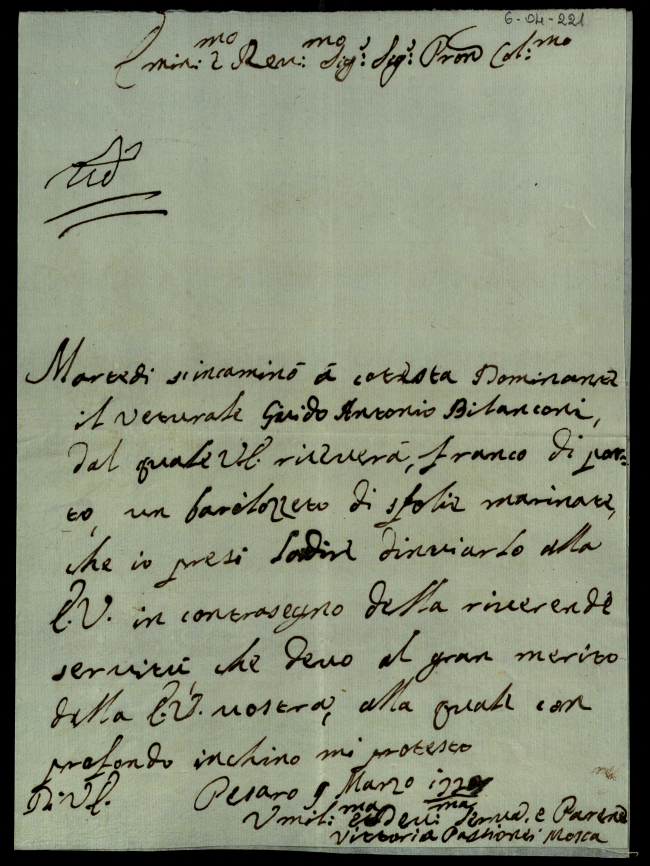 6-04-221
Emin:mo e Reu:mo Sig:r Sig:r Pron Col:mo
Martedi s'incaminò à cotesta Dominante
il veturale Guido Antonio Bilanconi,
dal quale V.E. riceverà, franco di por=
to, un barilozzeto di sfolie marinate,
che io presi l'ardire d'inviarlo alla
E.V. in contrasegno della riverende
servitù, che devo al gran merito
della E.V. vostra, alla quale con
profondo inchino mi protesto
Di V.E.
Pesaro 9 Marzo
Vmil:ma et Deu:ma Serua, e Parente
Vittoria Passionei Mosca